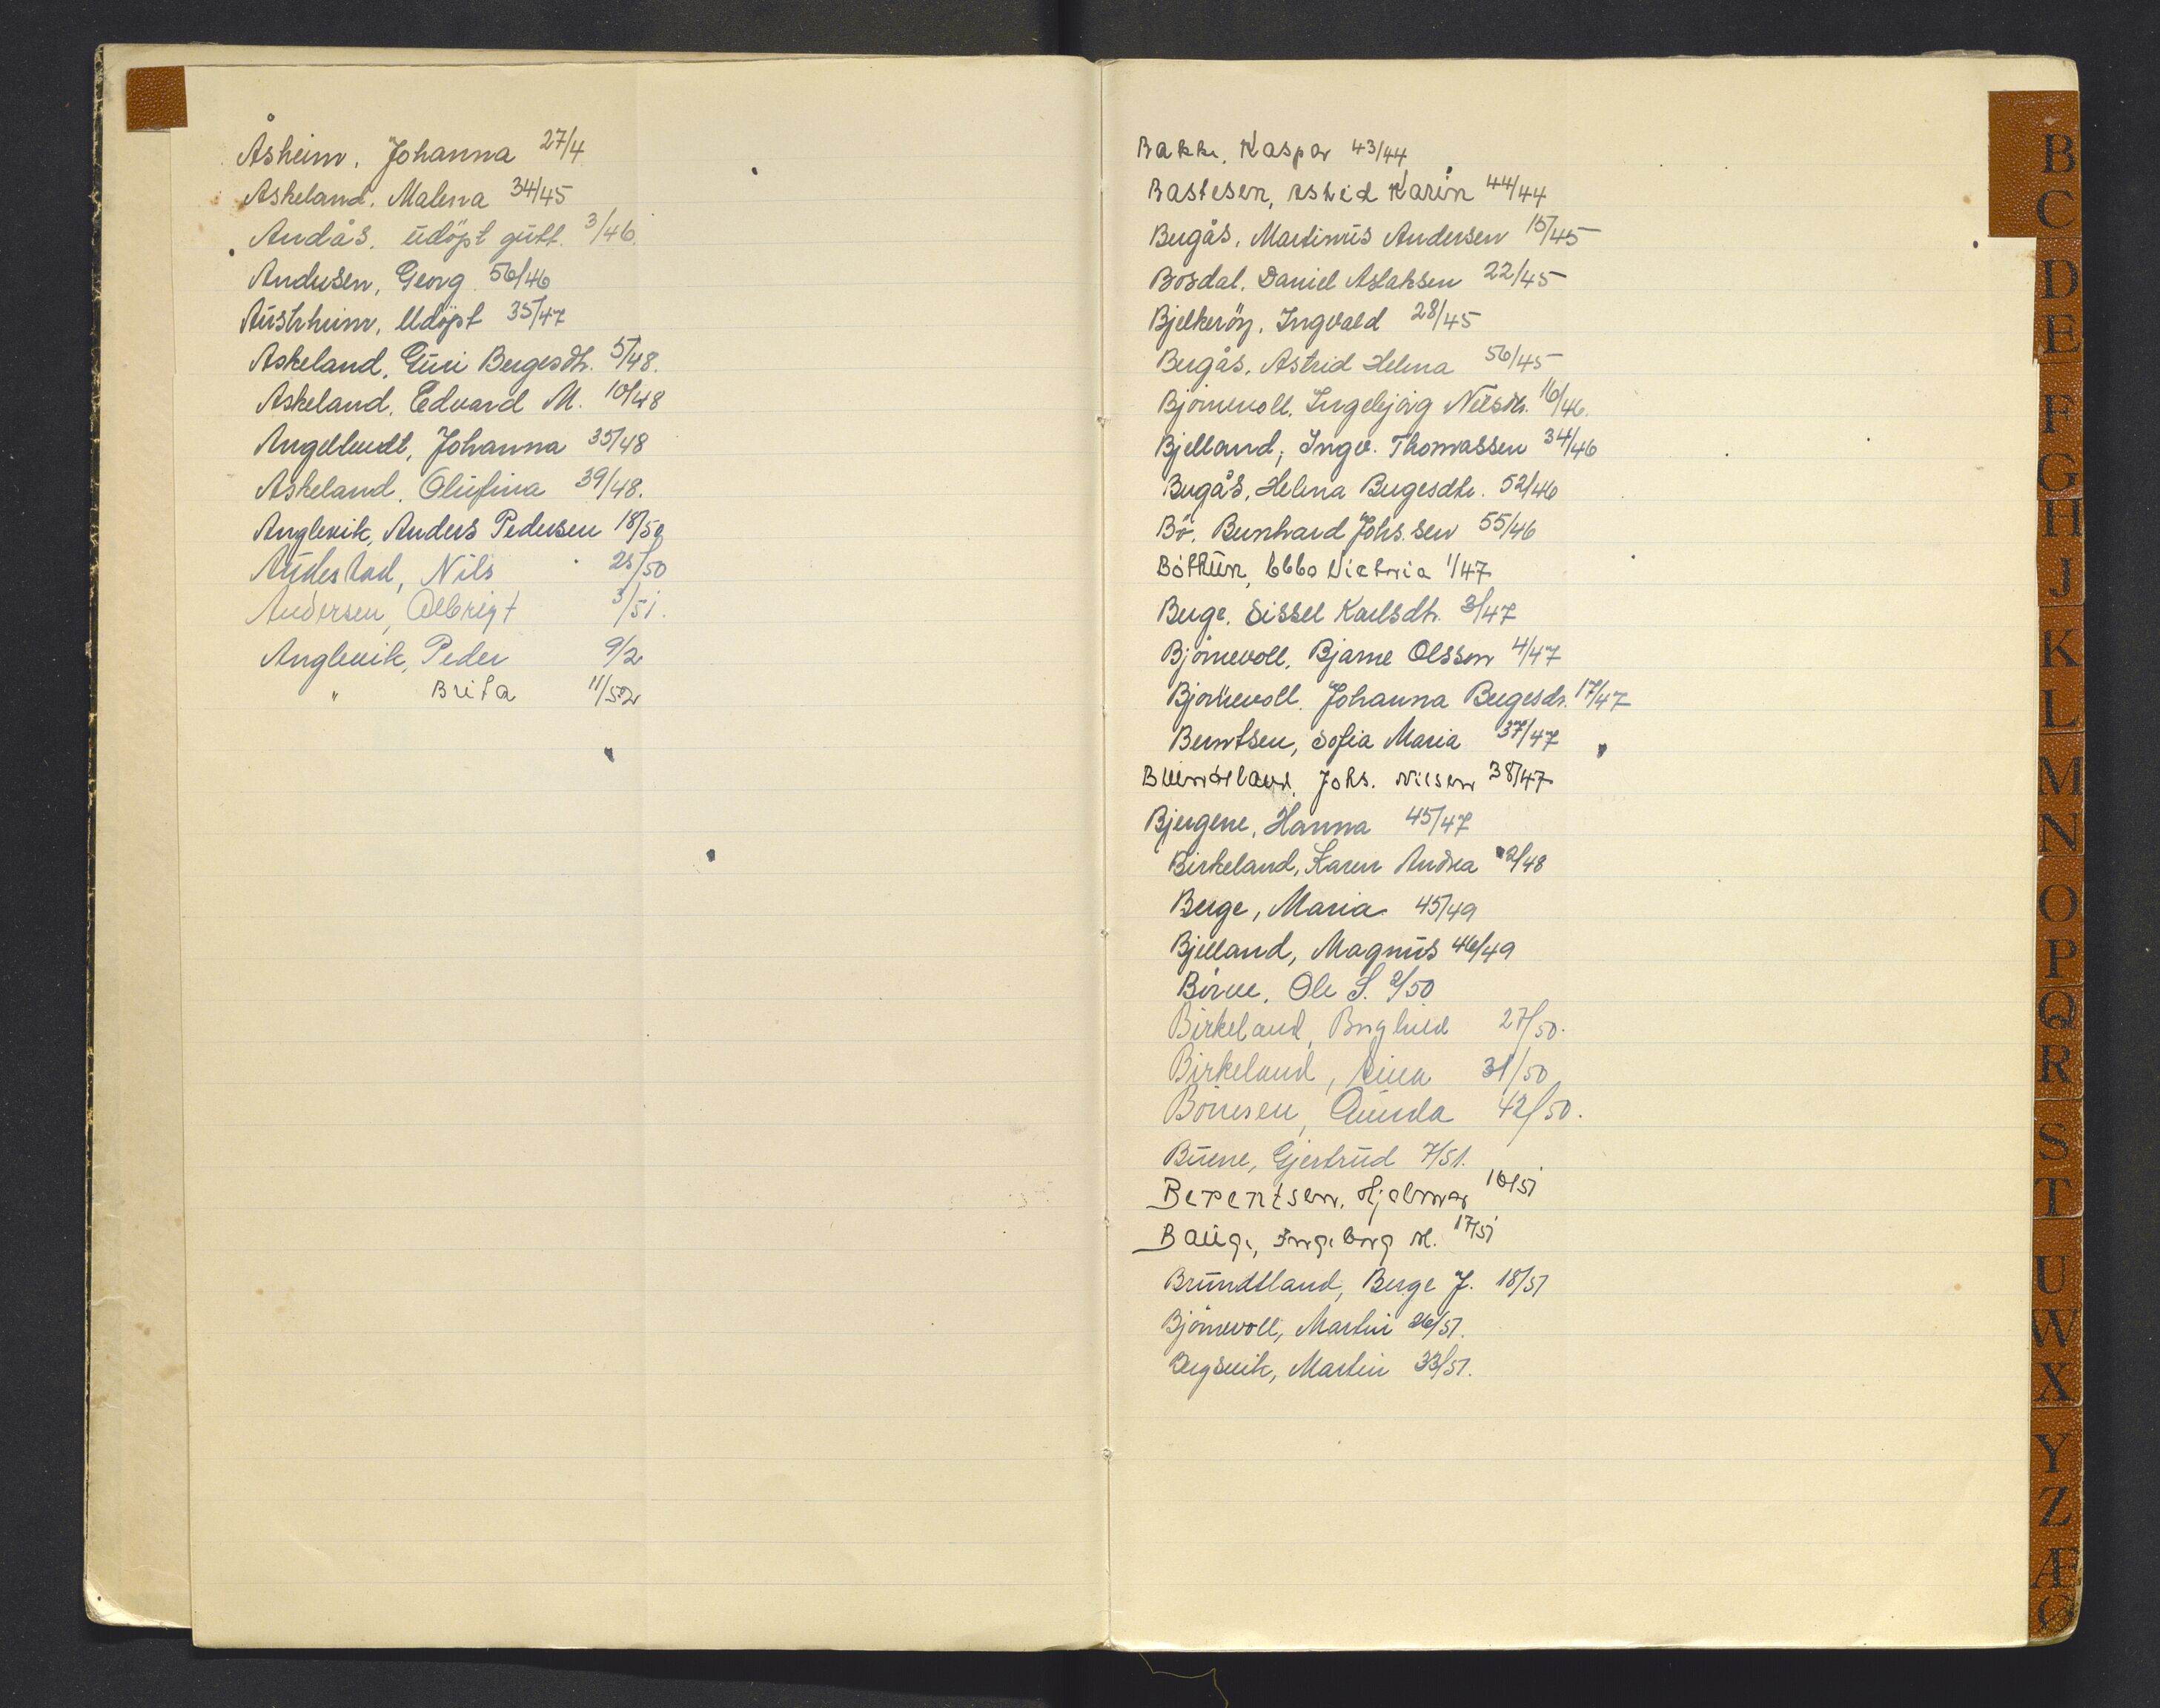 Åsheim, Johanna 27/4
Askeland, Malena 34/45
Andås, udöpt gutt. 3/46.
Andersen, Georg 56/46
Austrheim, Udöpt 35/47
Askeland, Guri Bergesdtr. 5/48.
Askeland, Edvard M. 10/48
Angeltveit, Johanna 35/48
Askeland, Olufina 39/48.
Anglevik, Anders Pedersen 18/50
Audestad, Nils 25/50
Andersen, Albrigt 3/51.
Anglevik, Peder 9/2
" Brita 11/52
Bakke, Kaspar 43/44
Bastesen, Astrid Karin 44/44
Bergås, Martinus Andersen 15/45
Bosdal, Daniel Aslaksen 22/45
Bjelkeröy, Ingvald 28/45
Bergås, Astrid Helena 56/45
Björnevoll, Ingebjörg Nilsdtr. 16/46.
Bjelland, Ingv. Thomassen 34/46
Bergås, Helena Bergesdtr. 52/46
Bö, Bernhard Johs.sen 55/46
Böthun, Ebba Victoria 1/47
Berge, Sissel Karlsdtr. 3/47
Björnevoll, Bjarne Olsson 4/47
Björnevoll, Johanna Bergesdr. 17/47
Berntsen, Sofia Maria 37/47
Johs. Nilsen 38/47
Bjergene, Hanna 45/47
Birkeland, Karen Andrea 2/48
Berge, Maria 45/49
Bjelland, Magnus 46/49
Börve, Ole S. 2/50
Birkeland, 27/50.
Birkeland, 31/50
Börnesen, Gunda 42/50.
Buene, Gjertrud 7/51.
Berentsen, Hjalmar 10/51
Bauge, Ingeborg M. 17/51
Brundtland, Berge J. 18/51
Björnevoll, Martin 26/51.
Bergsvik, Martin 33/51.
B
C
D
E
F
G
H
J
K
L
M
N
O
P
Q
R
S
T
U
W
X
Y
Z
Æ
Ø